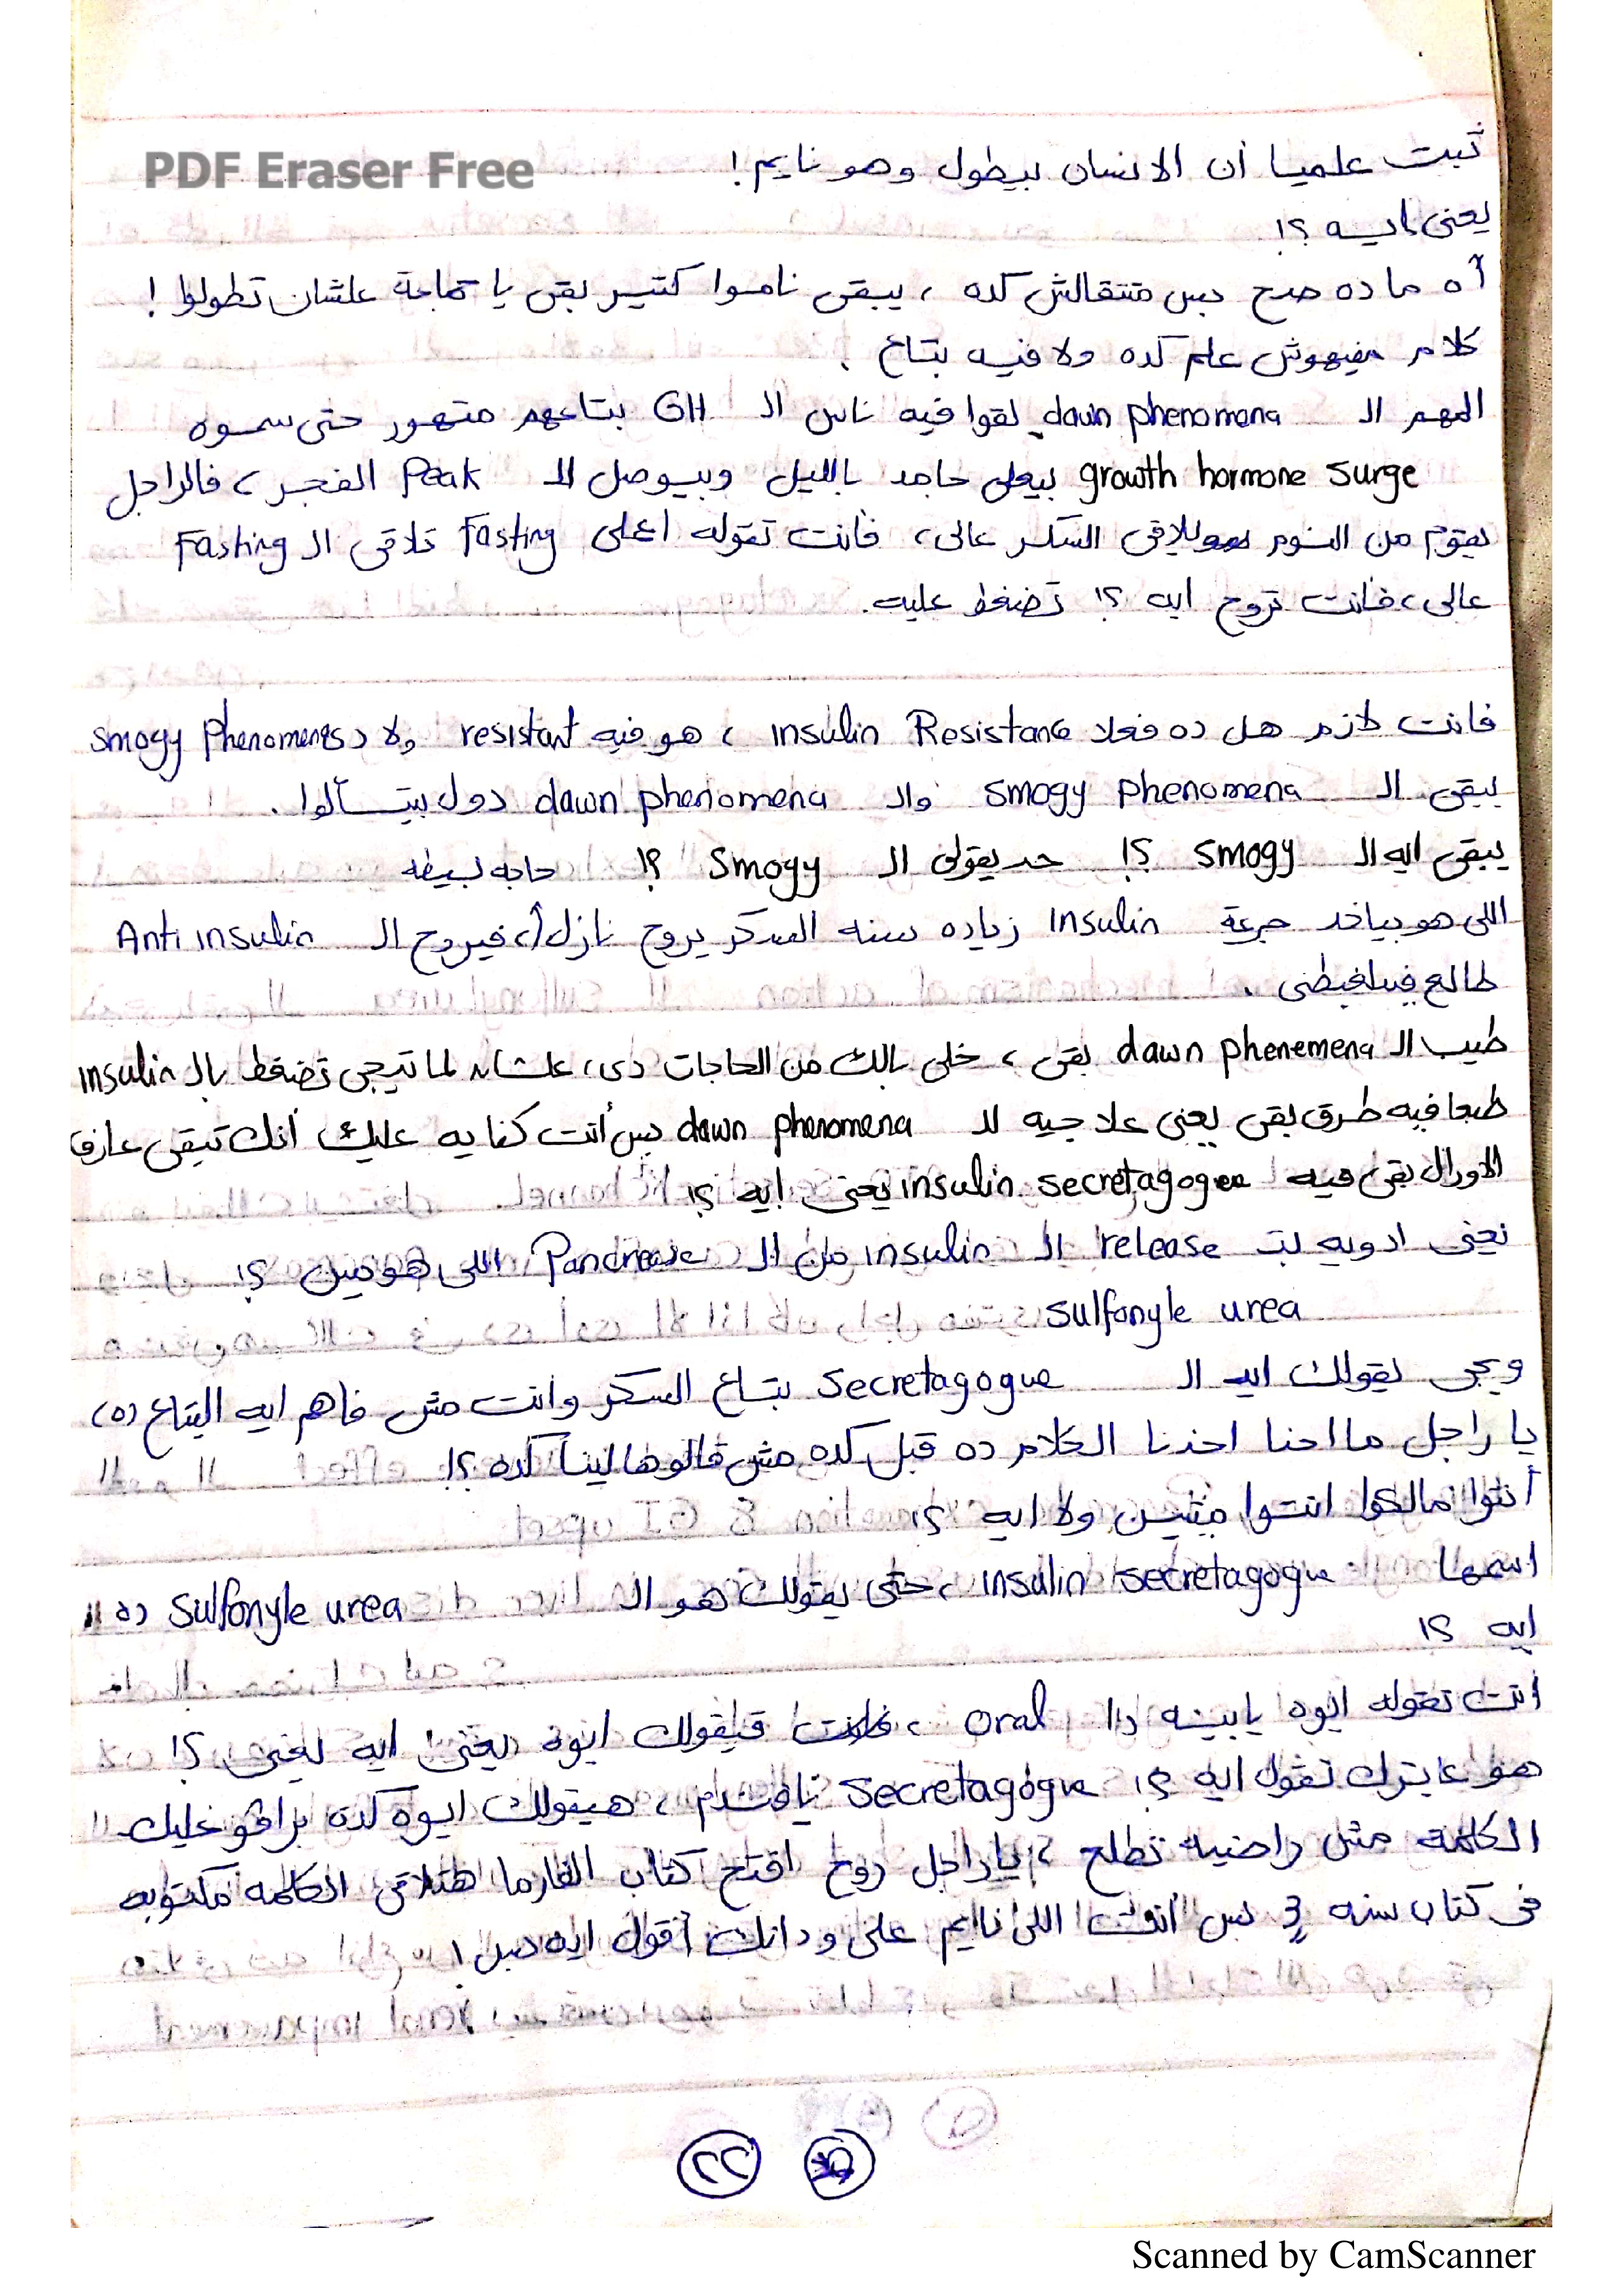 PDF Eraser Free
ثبت علميا أن الانسان بيطول وهو نايم !
يعنى ايه ؟!
آه ما ده صح بس متتقالش كده ، يبقى ناموا كتير بقى يا جماعة علشان تطولوا !
كلام مفيهوش علم كده ولا فيه بتاع .
المهم الـ dawn phenomena لقوا فيه ناس الـ GH بتاعهم متهور حتى سموه
growth hormone surge بيعلى جامد بالليل وبيوصل للـ Peak الفجر ، فالراجل
يقوم من النوم يلاقى السكر عالى ، فأنت تقوله اعلى Fasting تلاقى الـ Fasting
عالى ، فانت تروح ايه ؟! تضغط عليه .
فانت لازم هل ده فعلا insulin Resistance ، هو فيه resistant ولا د smogy phenomenas
يبقى الـ smogy phenomena والـ dawn phenomena دول بيتسألوا .
يبقى ايه الـ smogy ؟! حد يقولى الـ smogy ؟! حاجه بسيطه
اللى هو بياخد جرعة insulin زياده سنه السكر يروح نازل ، فيروح الـ Anti insulin
طالع فيلغبطنى .
طيب الـ dawn phenemena بقى ، خلى بالك من الحاجات دى ، علشان لما تيجى تضغط بالـ insulin
طبعا فيه طرق بقى يعنى علاجيه للـ dawn phenomena بس أنت كفايه عليك أنك تبقى عارف
الاورال بقى فيه insulin secretagogue يعنى ايه ؟!
يعنى ادويه بتـ release الـ insulin من الـ Pancrease اللى هو مين ؟!
sulfonyle urea
ويجى يقولك ايه الـ secretagogue بتاع السكر وانت مش فاهم ايه البتاع ده ،
يا راجل ما احنا اخدنا الكلام ده قبل كده مش قالوها لينا كده ؟!
أنتوا مالكوا انتوا ميتين ولا ايه ؟!
اسمها insulin secretagogue ، حتى يقولك هو الـ sulfonyle urea ده !!
ايه ؟!
أنت تقوله ايوه يا بيه دا oral ، فيقولك ايوه يعنى ايه يعنى ؟!
هو عايزك تقول ايه ؟! secretagogue يا فندم ، هيقولك ايوه كده برافو عليك
الكلمة مش راضية تطلع ، يا راجل روح افتح كتاب الفارما هتلاقى الكلمه مكتوبه
فى كتاب سنه 3 بس أنت اللى نايم على ودانك أقول ايه بس !
٢٢
Scanned by CamScanner